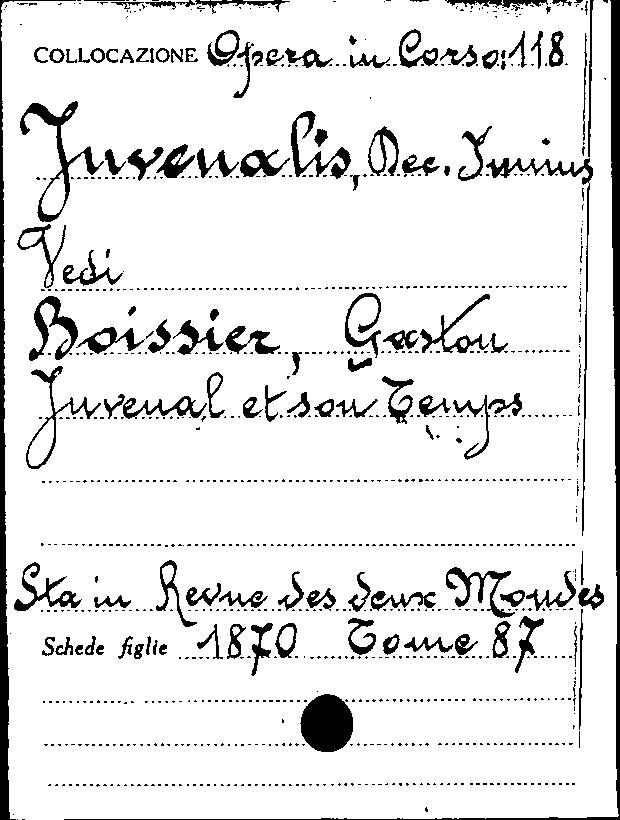 COLLOCAZIONE Opera in Corso: 118
Juvenalis, Dec. Junius
Vedi
Boissier, Gaston
Juvenal et son Temps
Sta in Revue des deux Mondes
Schede figlie 1870 Tome 87